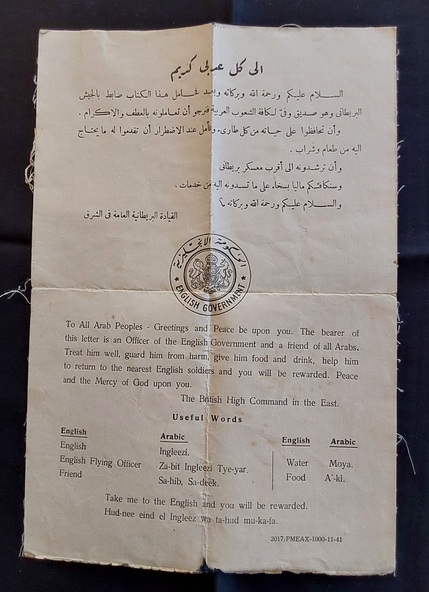 الى كل عربي كريم
السلام عليكم ورحمة الله وبركاته وبعد فحامل هذا الكتاب ضابط بالجيش
البريطاني وهو صديق وفيّ لكافة الشعوب العربية فنرجو أن تعاملونه بالعطف والاكرام .
وأن تحافظوا على حياته من كل طارىء ونأمل عند الاضطرار أن تقدموا له مايحتاج
اليه من طعام وشراب .
وأن ترشدونه الى أقرب معسكر بريطاني
وسنكافئكم ماليا بسخاء على ما تسدونه اليه من خدمات .
والسلام عليكم ورحمة الله وبركاته
القيادة البريطانية العامة في الشرق
الحكومة الإنجليزية
★ ENGLISH GOVERNMENT ★
To All Arab Peoples - Greetings and Peace be upon you. The bearer of
this letter is an Officer of the English Government and a friend of all Arabs.
Treat him well, guard him from harm, give him food and drink, help him
to return to the nearest English soldiers and you will be rewarded. Peace
and the Mercy of God upon you.
The British High Command in the East.
Useful Words
English Arabic English Arabic
English Ingleezi.
English Flying Officer Za-bit Ingleezi Tye-yar. Water Moya.
Friend Sa-hib, Sa-deek. Food A'-kl.
Take me to the English and you will be rewarded.
Hud-nee eind el Ingleez wa ta-hud mu-ka-fa.
2017/PMEAX-1000-11-41